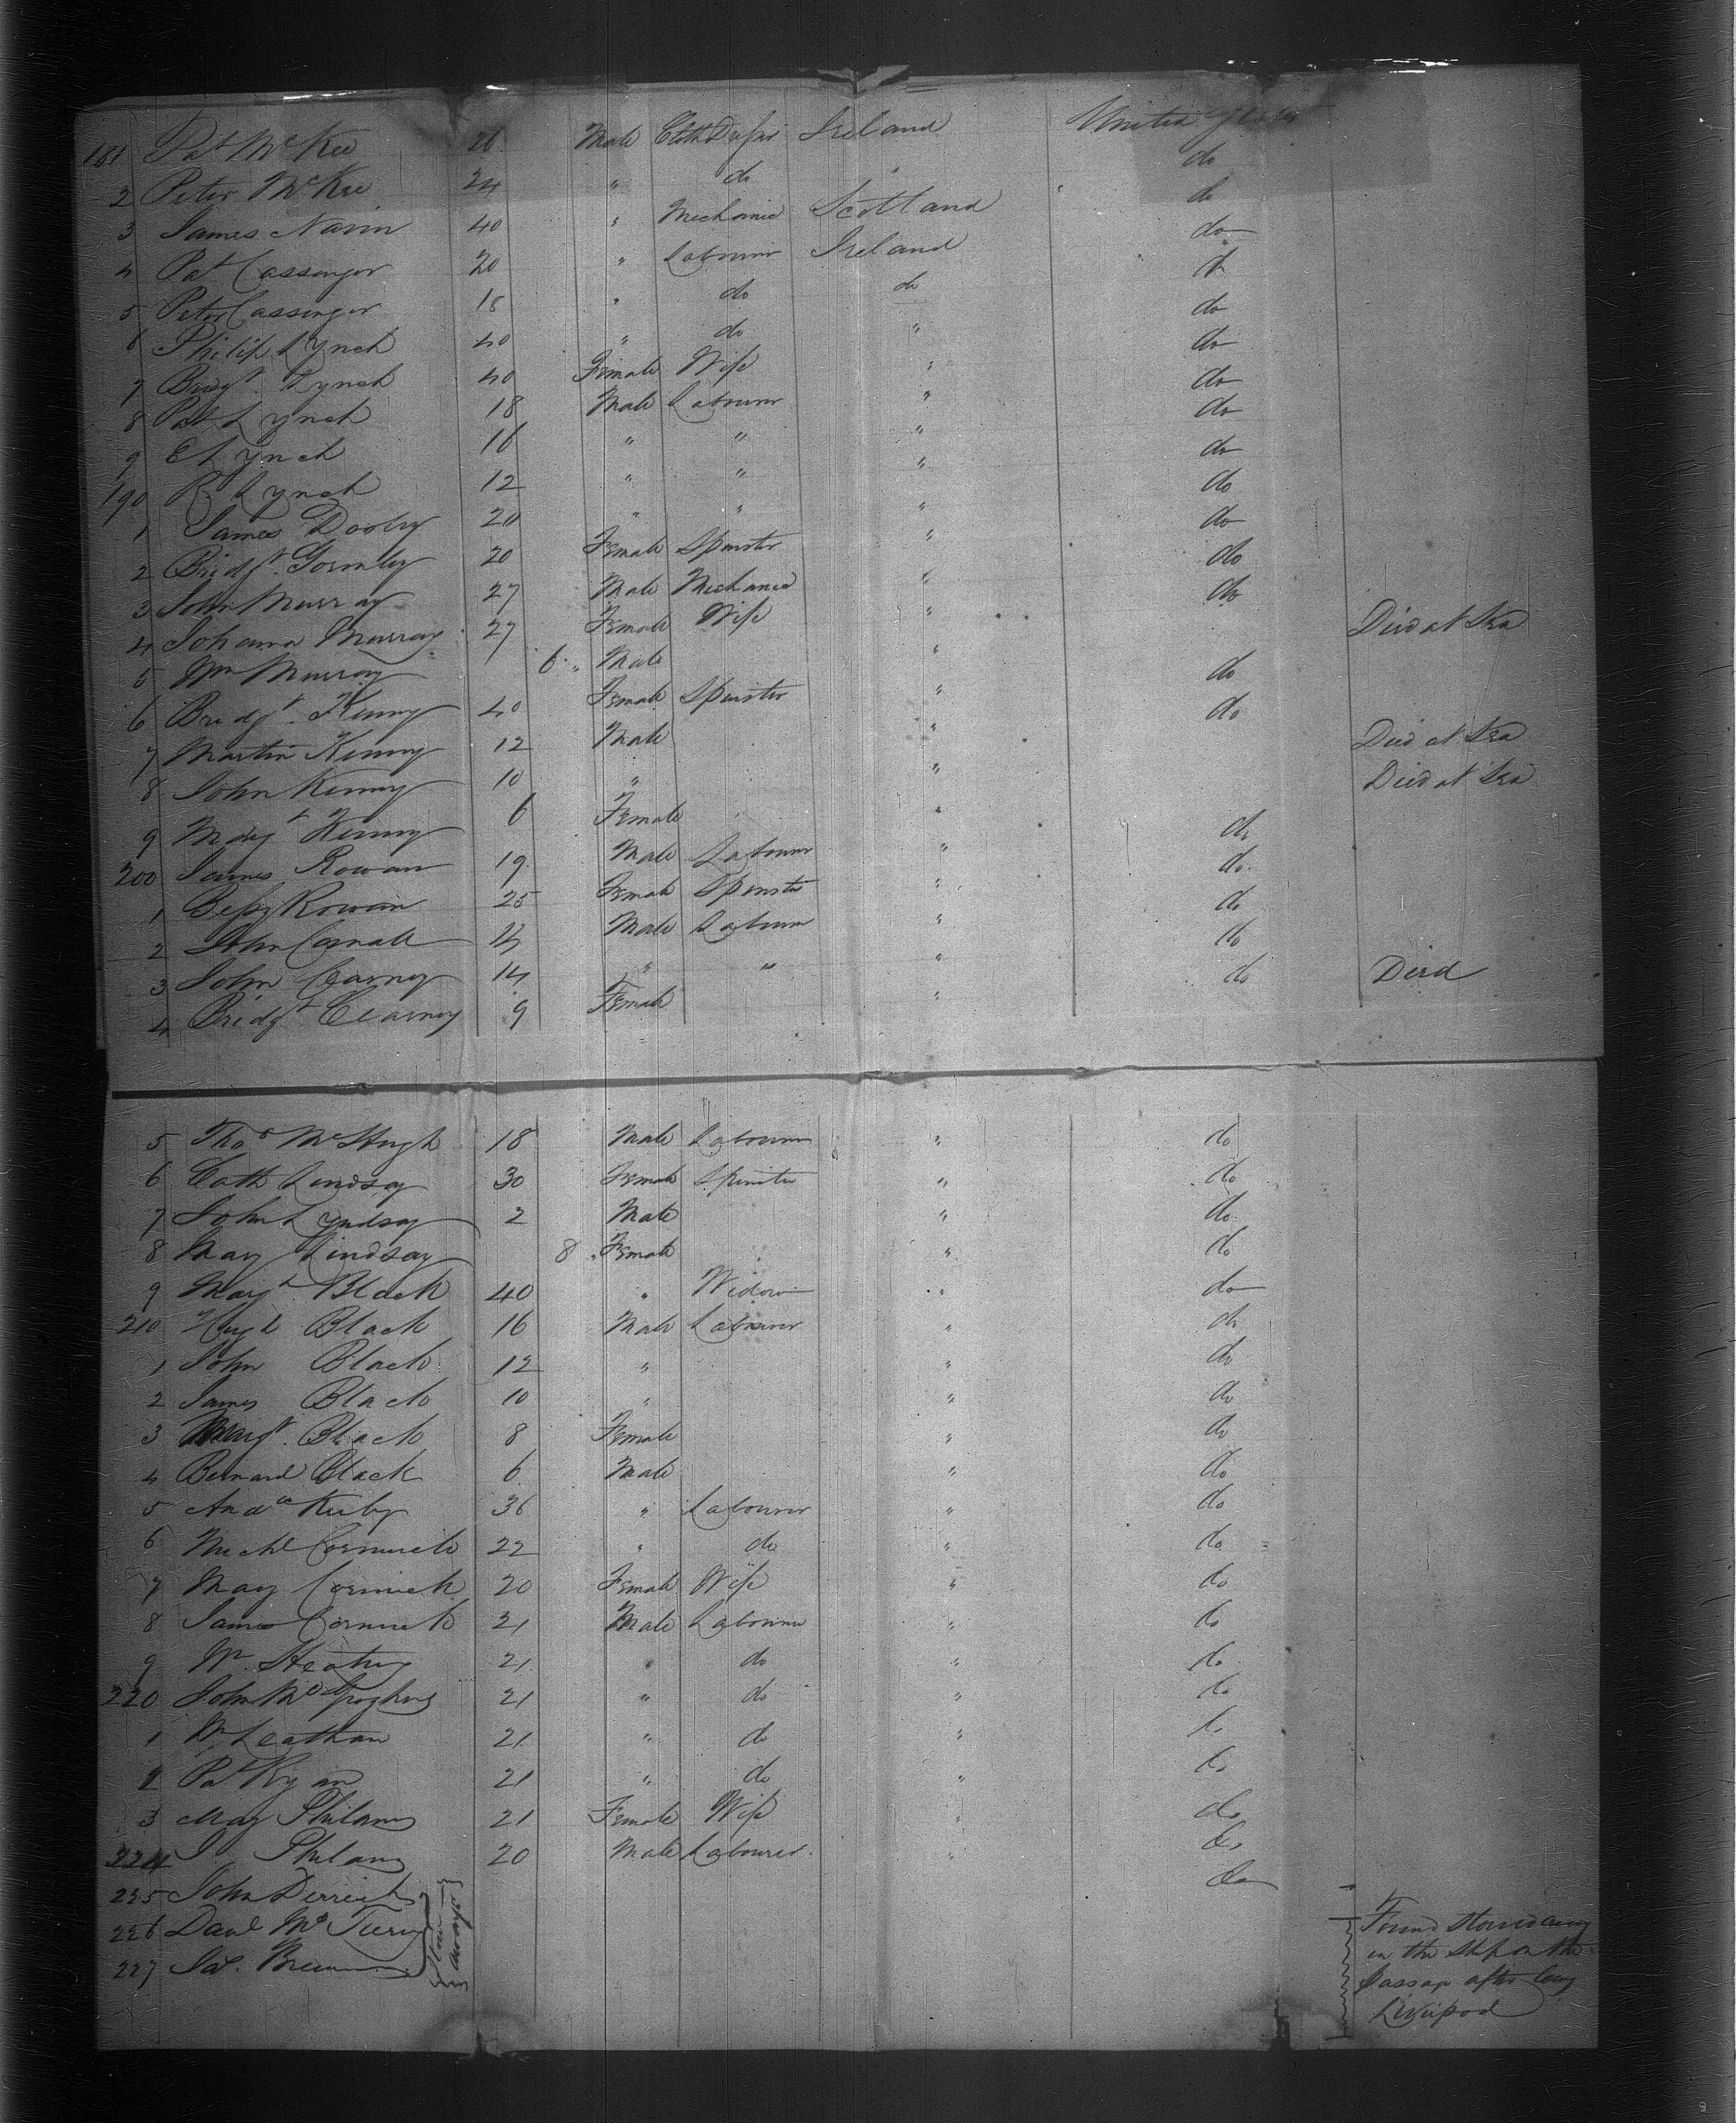 181 Pat McKee 26 Male Cloth Ireland United States
2 Peter McKee 24 " do " do
3 James Navin 40 " Mechanic Scotland do
4 Pat Cassenger 20 " Labourer Ireland do
5 Peter Cassenger 18 " do do do
6 Philip Lynch 40 " do " do
7 Bridgt. Lynch 40 Female Wife " do
8 Pat Lynch 18 Male Labourer " do
9 E Lynch 16 " " " do
190 R Lynch 12 " " " do
1 James Dooley 20 " " " do
2 Bridgt. Gormley 20 Female Spinster " do
3 John Murray 27 Male Mechanic " do
4 Johanna Murray 27 Female Wife " do
5 Wm Murray 6 " Male " Died at Sea
6 Bridgt. Kenny 40 Female Spinster " do
7 Martin Kenny 12 Male " do
8 John Kenny 10 " " Died at Sea
9 Margt Kenny 6 Female " Died at Sea
200 James Rowan 19 Male Labourer " do
1 Bessy Rowan 25 Female Spinster " do
2 John Male Labourer " do
3 John Cearney 14 " " " do
4 Bridgt Cearney 9 Female " do Died
5 Thos McHugh 18 Male Labourer " do
6 Cath Lindsay 30 Female Spinster " do
7 John Lyndsay 2 Male " do
8 Mary Lindsay 8 " Female " do
9 Margt. Black 40 " Widow " do
210 Hugh Black 16 Male Labourer " do
1 John Black 12 " " do
2 James Black 10 " " do
3 Margt. Black 8 Female " do
4 Bernard Black 6 Male " do
5 Andw Kirby 36 " Labourer " do
6 Michl Cormick 22 " do " do
7 Mary Cormick 20 Female Wife " do
8 James Cormick 21 Male Labourer " do
9 Wm Heating 21 " do " do
220 John 21 " do " do
1 Wm Leatham 21 " do " do
2 Pat Ryan 21 " do " do
3 Mary Philans 21 Female Wife " do
224 J. Philans 20 Male Labourer " do
225 John Derrigh do
226 Danl Stow aways
227 Jas.
Found Stowed away
in the Ship on the
passage after leavg
Liverpool